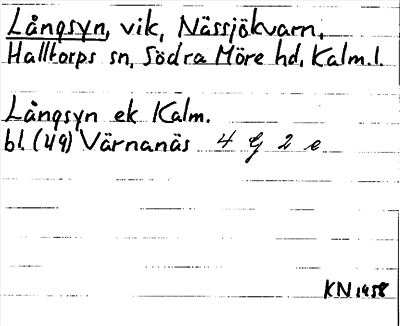 Långsyn, vik, Nässjökvarn,
Halltorps sn, Södra Möre hd, Kalm. l.
Långsyn ek Kalm.
bl. (49) Värnanäs 4 G 2 e
KN 1958